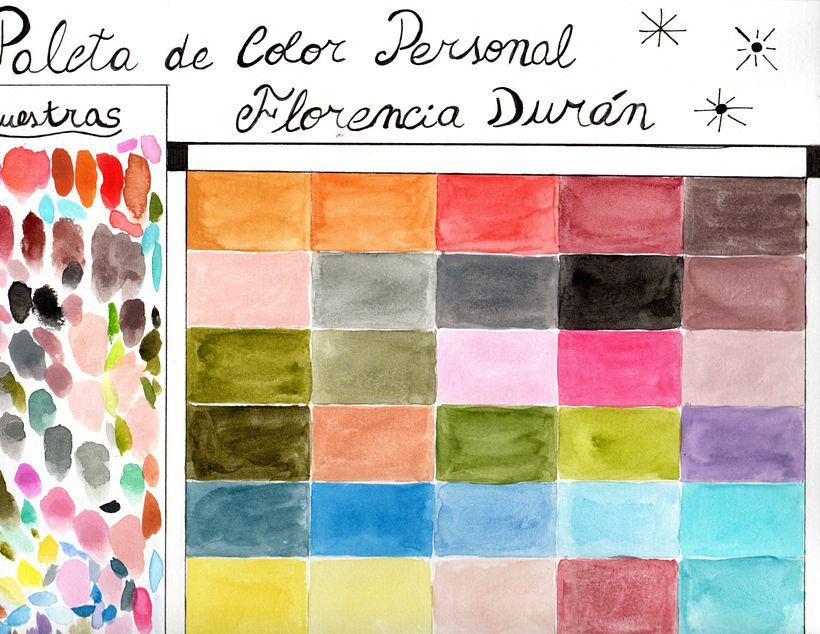 Paleta de Color Personal
Florencia Durán
uestras